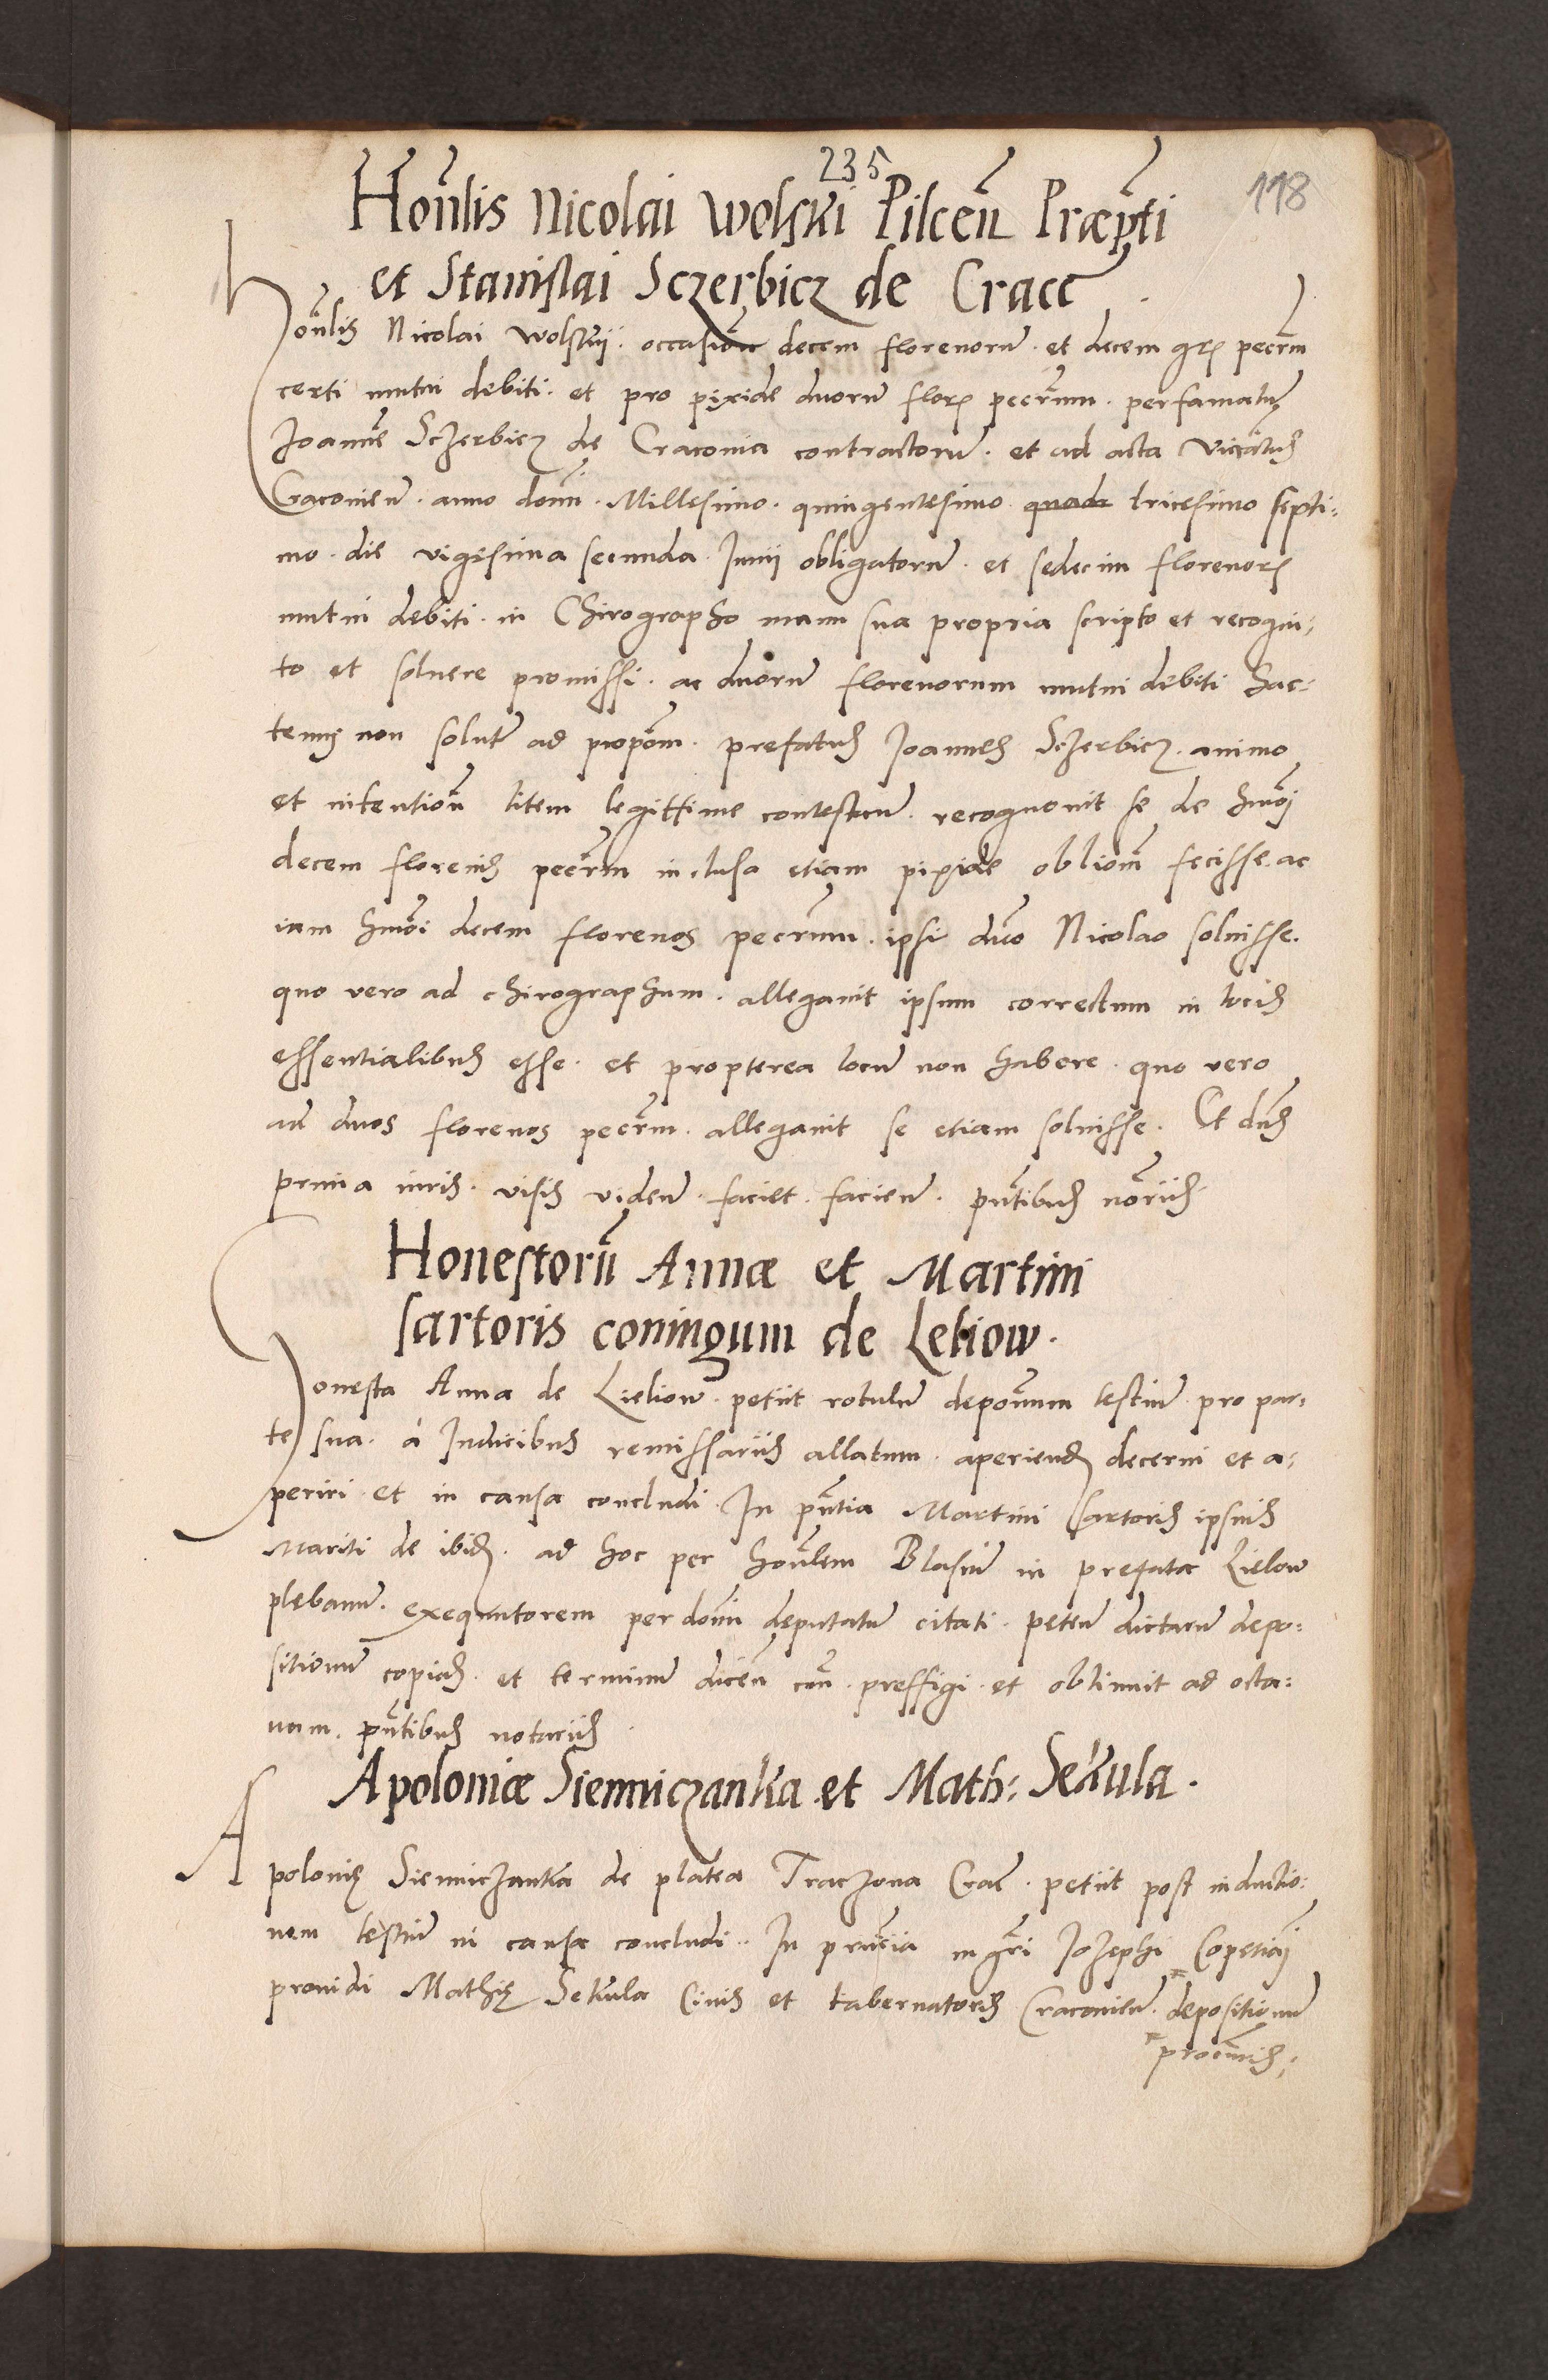 235
118
Hon̄lis Nicolai Wolski Pilcen̄ Præp̄ti
et Stanislai Sczerbicz de Cracc
Hon̄lis Nicolai Wolskij. occasion̄ decem florenorū. et decem grꝭ pecc̄rm
certi mutui debiti. et pro pixide duorū florꝭ peccr̄um. per famatum
Joannē Sczerbicz de Cracouia contractorū. et ad acta Vicc̄atus
Cracouieñ. anno domī. Millesimo. quingentesimo quadr tricesimo septi:
mo. die vigesima secunda Junij obligatorū. et sedecim florenorꝭ
mutui debiti. in Chirographo manu sua propria scripto et recogni:
to et soluere promissi. ac duorū florenorum mutui debiti hac:
tenus non solut̄ ad propōm. prefatus Joannes Sczerbicz. animo
et intentioñ litem legittime contestanū. recognouit se de hmōi
decem florenis peccr̄m inclusa etiam pixide obliōm fecisse. ac
iam hmōi decem florenos peccr̄um. ipsi dn̄o Nicolao soluisse.
quo vero ad chirographum. allegauit ipsum correctum in locis
essentialibus esse. et propterea locū non habere. quo vero
ad duos florenos peccr̄m. allegauit se etiam soluisse. Et dn̄s
premia iuris. visis videnū. faciet. facienū. pn̄tibus nōrijs
Honestorū Annæ et Martini
sartoris coniugum de Leliow.
Honesta Anna de Lieliow. petijt rotulū depōnum testiū pro par:
te sua. à Judicibus remissarijs allatum. aperiendꝭ decerni et a:
periri et in causa concludi. In pn̄tia Martini sartoris ipsius
Mariti de ibidꝭ. ad hoc per honl̄em Blasiū in prefata Lielow
plebanū. exequutorem per domī deputatū citati. peteñ dictarū depo:
sitionū copias. et terminū diceñ con̄. preffigi. et obtinuit ad octa:
uam. pn̄tibus notarijs.
Apoloniæ Siemiczanka et Math: Sekula.
Apolonię Siemiczanka de platea Traczona Crac̄. petijt post inductio:
nem testiū in causa concludi. In pn̄tia mgr̄i Jozephi Copeticij
prouidi Mathię Sekula Ciuis et tabernatoris Cracouieñ. depositionū
procūris;